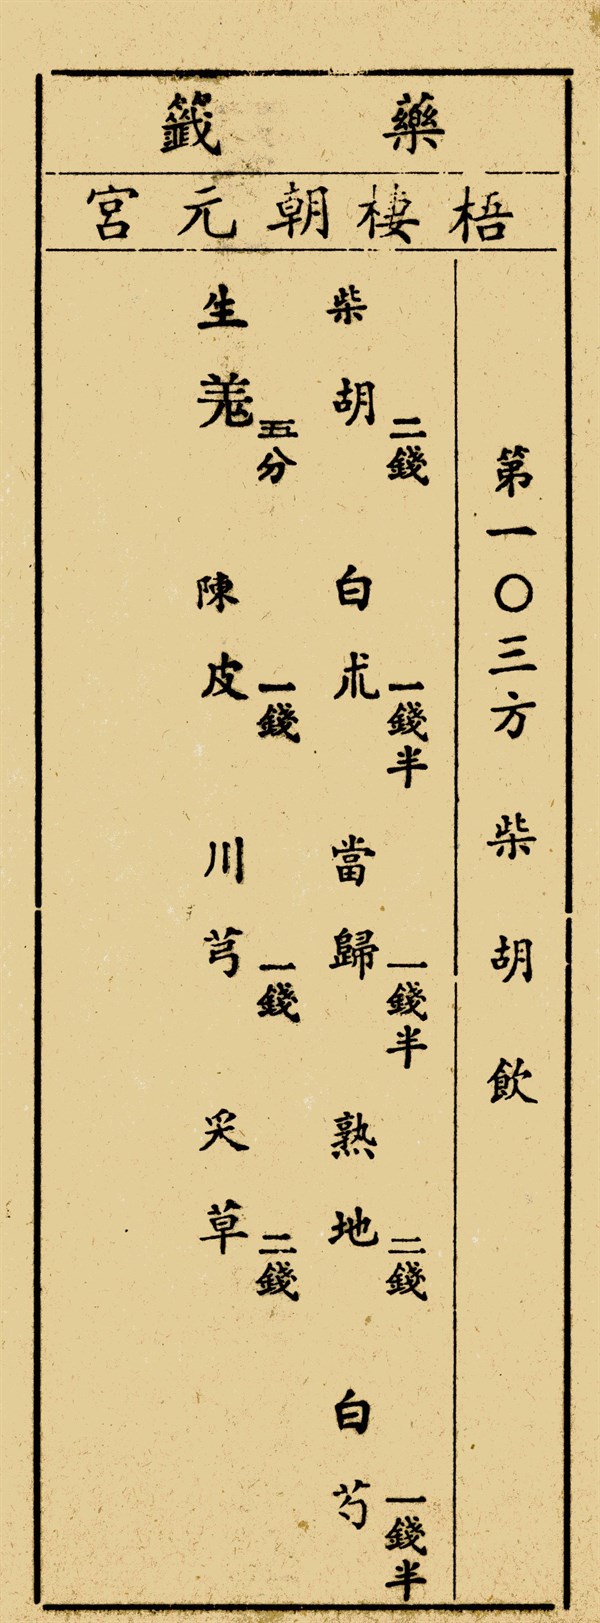 藥籤
梧棲朝元宮
第一〇三方 柴胡飲
柴胡二錢 白朮一錢半 當歸一錢半 熟地二錢 白芍一錢半
生羗五分 陳皮一錢 川芎一錢 炙草二錢